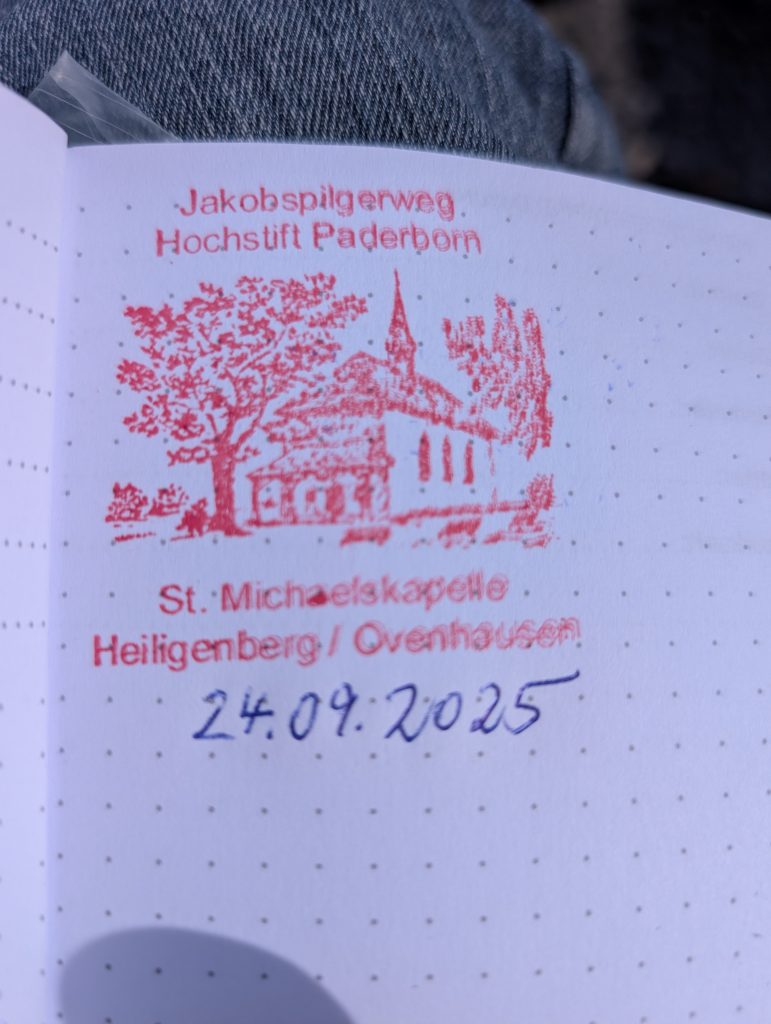 Jakobspilgerweg
Hochstift Paderborn
St. Michaelskapelle
Heiligenberg / Ovenhausen
24.09.2025